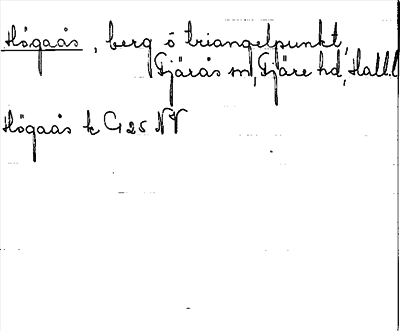 Högaås, berg o triangelpunkt,
Fjärås sn, Fjäre hd, Hall.
Högaås k G 25 NV